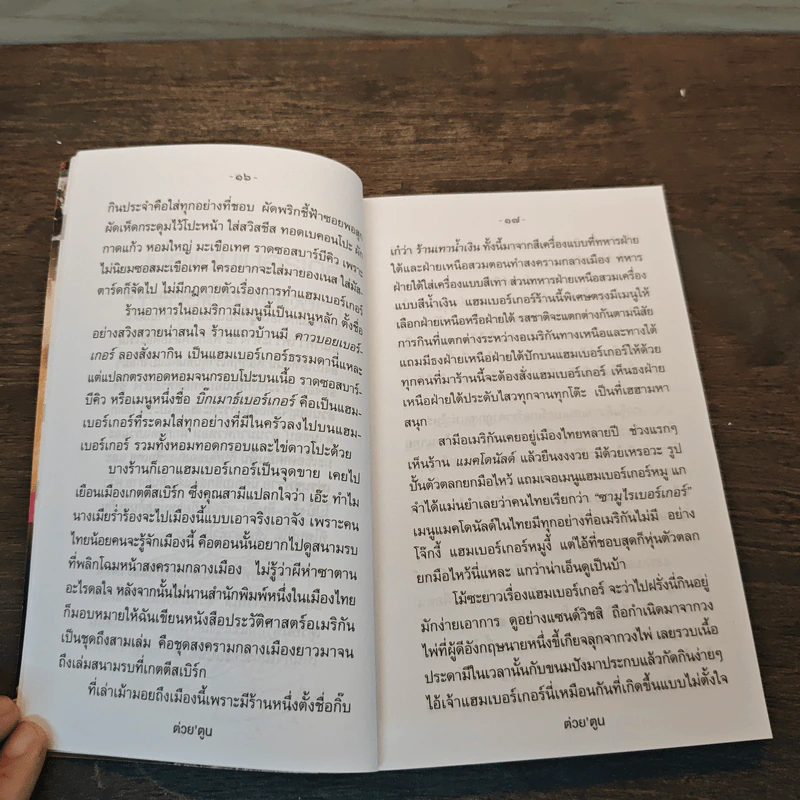 -๑๖-
กินประจำคือใส่ทุกอย่างที่ชอบ ผัดพริกชี้ฟ้าซอยพอสุก
ผัดเห็ดกระดุมไว้โปะหน้า ใส่สวิสชีส ทอดเบคอนโปะ ผัก
กาดแก้ว หอมใหญ่ มะเขือเทศ ราดซอสบาร์บีคิว เพราะ
ไม่นิยมซอสมะเขือเทศ ใครอยากจะใส่มายองเนส ใส่มัส-
ตาร์ดก็จัดไป ไม่มีกฎตายตัวเรื่องการทำแฮมเบอร์เกอร์
ร้านอาหารในอเมริกามีเมนูนี้เป็นเมนูหลัก ตั้งชื่อ
อย่างสวิงสวายน่าสนใจ ร้านแถวบ้านมี คาวบอยเบอร์-
เกอร์ ลองสั่งมากิน เป็นแฮมเบอร์เกอร์ธรรมดานี่แหละ
แต่แปลกตรงทอดหอมจนกรอบโปะบนเนื้อ ราดซอสบาร์-
บีคิว หรือเมนูหนึ่งชื่อ บิ๊กเมาธ์เบอร์เกอร์ คือเป็นแฮม-
เบอร์เกอร์ที่ระดมใส่ทุกอย่างที่มีในครัวลงไปบนแฮม-
เบอร์เกอร์ รวมทั้งหอมทอดกรอบและไข่ดาวโปะด้วย
บางร้านก็เอาแฮมเบอร์เกอร์เป็นจุดขาย เคยไป
เยือนเมืองเกตตีสเบิร์ก ซึ่งคุณสามีแปลกใจว่า เอ๊ะ ทำไม
นางเมียร่ำร้องจะไปเมืองนี้แบบเอาจริงเอาจัง เพราะคน
ไทยน้อยคนจะรู้จักเมืองนี้ คือตอนนั้นอยากไปดูสนามรบ
ที่พลิกโฉมหน้าสงครามกลางเมือง ไม่รู้ว่าผีห่าซาตาน
อะไรดลใจ หลังจากนั้นไม่นานสำนักพิมพ์หนึ่งในเมืองไทย
ก็มอบหมายให้ฉันเขียนหนังสือประวัติศาสตร์อเมริกัน
เป็นชุดถึงสามเล่ม คือชุดสงครามกลางเมืองยาวมาจน
ถึงเล่มสนามรบที่เกตตีสเบิร์ก
ที่เล่าเม้ามอยถึงเมืองนี้เพราะมีร้านหนึ่งตั้งชื่อกิ๊บ
ต่วย'ตูน
-๑๗-
เก๋ว่า ร้านเทาน้ำเงิน ทั้งนี้มาจากสีเครื่องแบบที่ทหารฝ่าย
ใต้และฝ่ายเหนือสวมตอนทำสงครามกลางเมือง ทหาร
ฝ่ายใต้ใส่เครื่องแบบสีเทา ส่วนทหารฝ่ายเหนือสวมเครื่อง
แบบสีน้ำเงิน แฮมเบอร์เกอร์ร้านนี้พิเศษตรงมีเมนูให้
เลือกฝ่ายเหนือหรือฝ่ายใต้ รสชาติจะแตกต่างกันตามนิสัย
การกินที่แตกต่างระหว่างอเมริกันทางเหนือและทางใต้
แถมมีธงฝ่ายเหนือฝ่ายใต้ปักบนแฮมเบอร์เกอร์ให้ด้วย
ทุกคนที่มาร้านนี้จะต้องสั่งแฮมเบอร์เกอร์ เห็นธงฝ่าย
เหนือฝ่ายใต้ประดับไสวทุกจานทุกโต๊ะ เป็นที่เฮฮามหา
สนุก
สามีอเมริกันเคยอยู่เมืองไทยหลายปี ช่วงแรกๆ
เห็นร้าน แมคโดนัลด์ แล้วยืนงงงวย มีด้วยเหรอวะ รูป
ปั้นตัวตลกยกมือไหว้ แถมเจอเมนูแฮมเบอร์เกอร์หมู แก
จำได้แม่นยำเลยว่าคนไทยเรียกว่า “ซามูไรเบอร์เกอร์”
เมนูแมคโดนัลด์ในไทยมีทุกอย่างที่อเมริกันไม่มี อย่าง
โจ๊กงี้ แฮมเบอร์เกอร์หมูงี้ แต่ไอ้ที่ชอบสุดก็หุ่นตัวตลก
ยกมือไหว้นี่แหละ แกว่าน่าเอ็นดูเป็นบ้า
โม้ซะยาวเรื่องแฮมเบอร์เกอร์ จะว่าไปฝรั่งนี่กินอยู่
มักง่ายเอาการ ดูอย่างแซนด์วิชสิ ถือกำเนิดมาจากวง
ไพ่ที่ผู้ดีอังกฤษนายหนึ่งขี้เกียจลุกจากวงไพ่ เลยรวบเนื้อ
ประดามีในเวลานั้นกับขนมปังมาประกบแล้วกัดกินง่ายๆ
ไอ้เจ้าแฮมเบอร์เกอร์นี่เหมือนกันที่เกิดขึ้นแบบไม่ตั้งใจ
ต่วย'ตูน